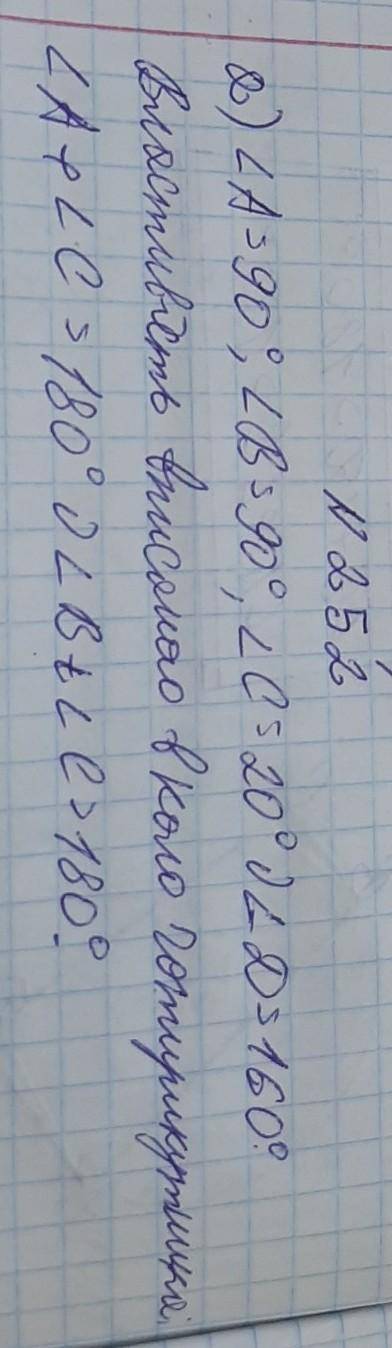 N 252
а) ∠A = 90°, ∠B = 90°, ∠C = 20° і ∠D = 160°.
Властивість вписаного в коло чотирикутника.
∠A + ∠C = 180° і ∠B + ∠C = 180°.